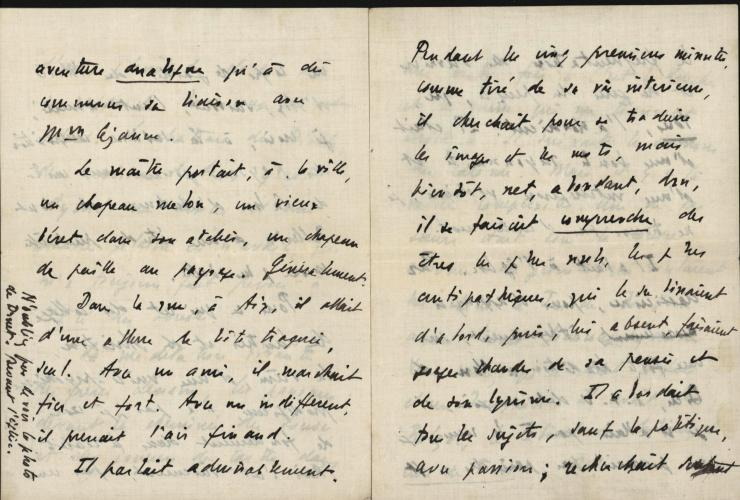 aventure analogue qu'à dû
commencer sa liaison avec
Mme Cézanne.
Le maître portait, à la ville,
un chapeau melon, un vieux
béret dans son atelier, un chapeau
de paille au paysage. Généralement.
Dans la rue, à Aix, il allait
d'une allure de bête traquée,
seul. Avec un ami, il marchait
fier et fort. Avec un indifférent,
il prenait l'air finaud.
Il parlait admirablement.
N'oubliez pas de voir la photo
de Denis, devant l'église.
Pendant les cinq premières minutes,
comme tiré de sa vie intérieure,
il cherchait pour se traduire
les images et les mots, mais
bientôt, net, abondant, dru,
il se faisait comprendre des
êtres les plus nuls, les plus
antipathiques, qui le
d'abord, puis, lui absent, faisaient
gorges chaudes de sa pensée et
de son lyrisme. Il abordait
tous les sujets, sauf la politique,
avec passion ; recherchait